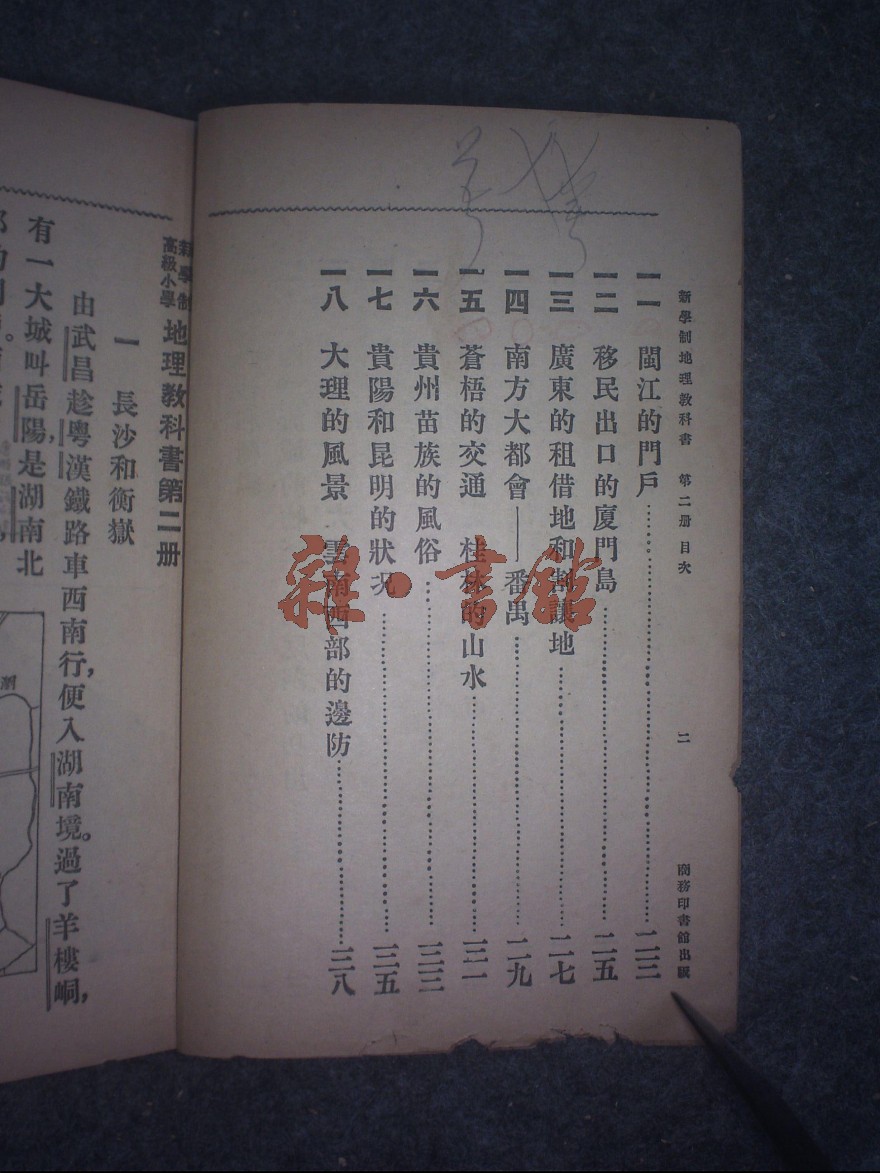 新學制地理教科書 第二册 目次 二 商務印書館出版
一一 閩江的門戶……二三
一二 移民出口的廈門島……二五
一三 廣東的租借地和割讓地……二七
一四 南方大都會——番禺……二九
一五 蒼梧的交通 桂林的山水……三一
一六 貴州苗族的風俗……三三
一七 貴陽和昆明的狀況……三五
一八 大理的風景 雲南西部的邊防……三八
雜·書館
新學制
高級小學 地理教科書第二册
一 長沙和衡嶽
由武昌趁粵漢鐵路車西南行,便入湖南境。過了羊樓峒,
有一大城叫岳陽,是湖南北
瀏